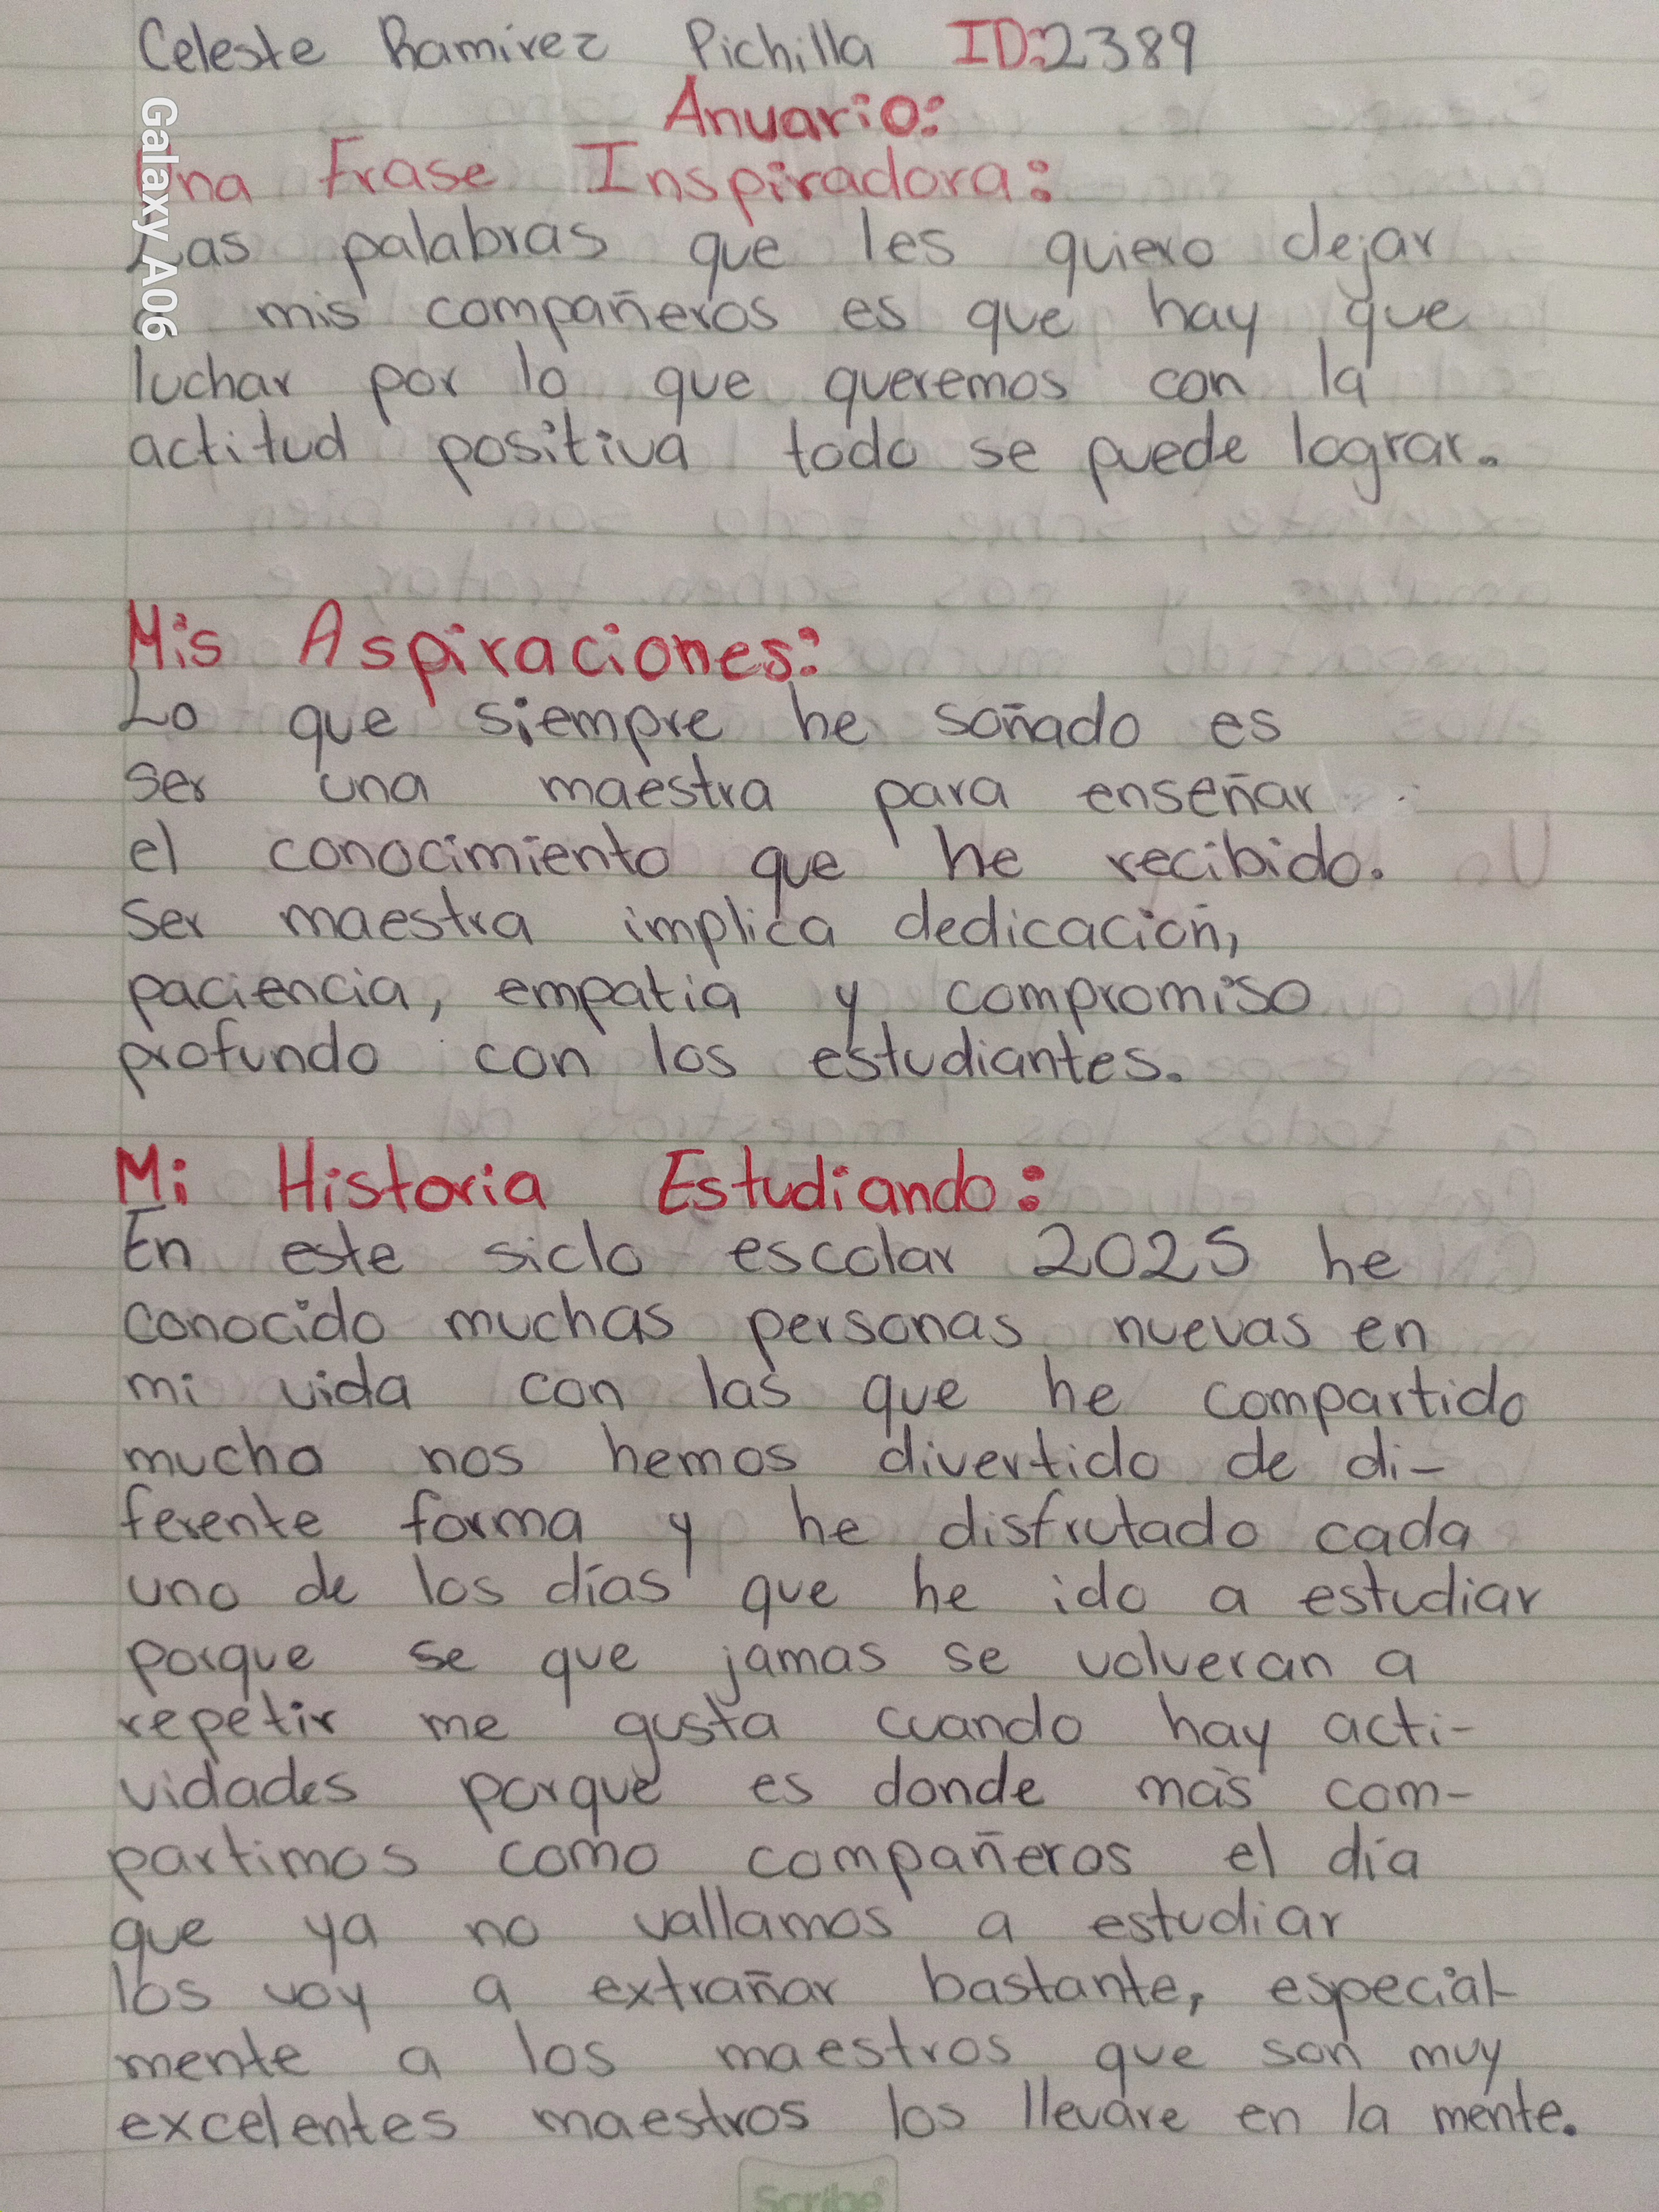 Celeste Ramirez Pichilla ID:2389
Anuario:
Una Frase Inspiradora:
Las palabras que les quiero dejar
a mis compañeros es que hay que
luchar por lo que queremos con la
actitud positiva todo se puede lograr.
Mis Aspiraciones:
Lo que siempre he soñado es
ser una maestra para enseñar
el conocimiento que he recibido.
Ser maestra implica dedicación,
paciencia, empatia y compromiso
profundo con los estudiantes.
Mi Historia Estudiando:
En este siclo escolar 2025 he
conocido muchas personas nuevas en
mi vida con las que he compartido
mucho nos hemos divertido de di-
ferente forma y he disfrutado cada
uno de los días que he ido a estudiar
porque se que jamas se volveran a
repetir me gusta cuando hay acti-
vidades porque es donde más com-
partimos como compañeros el día
que ya no vallamos a estudiar
los voy a extrañar bastante, especial-
mente a los maestros que son muy
excelentes maestros los llevare en la mente.
Scribe
Galaxy A06